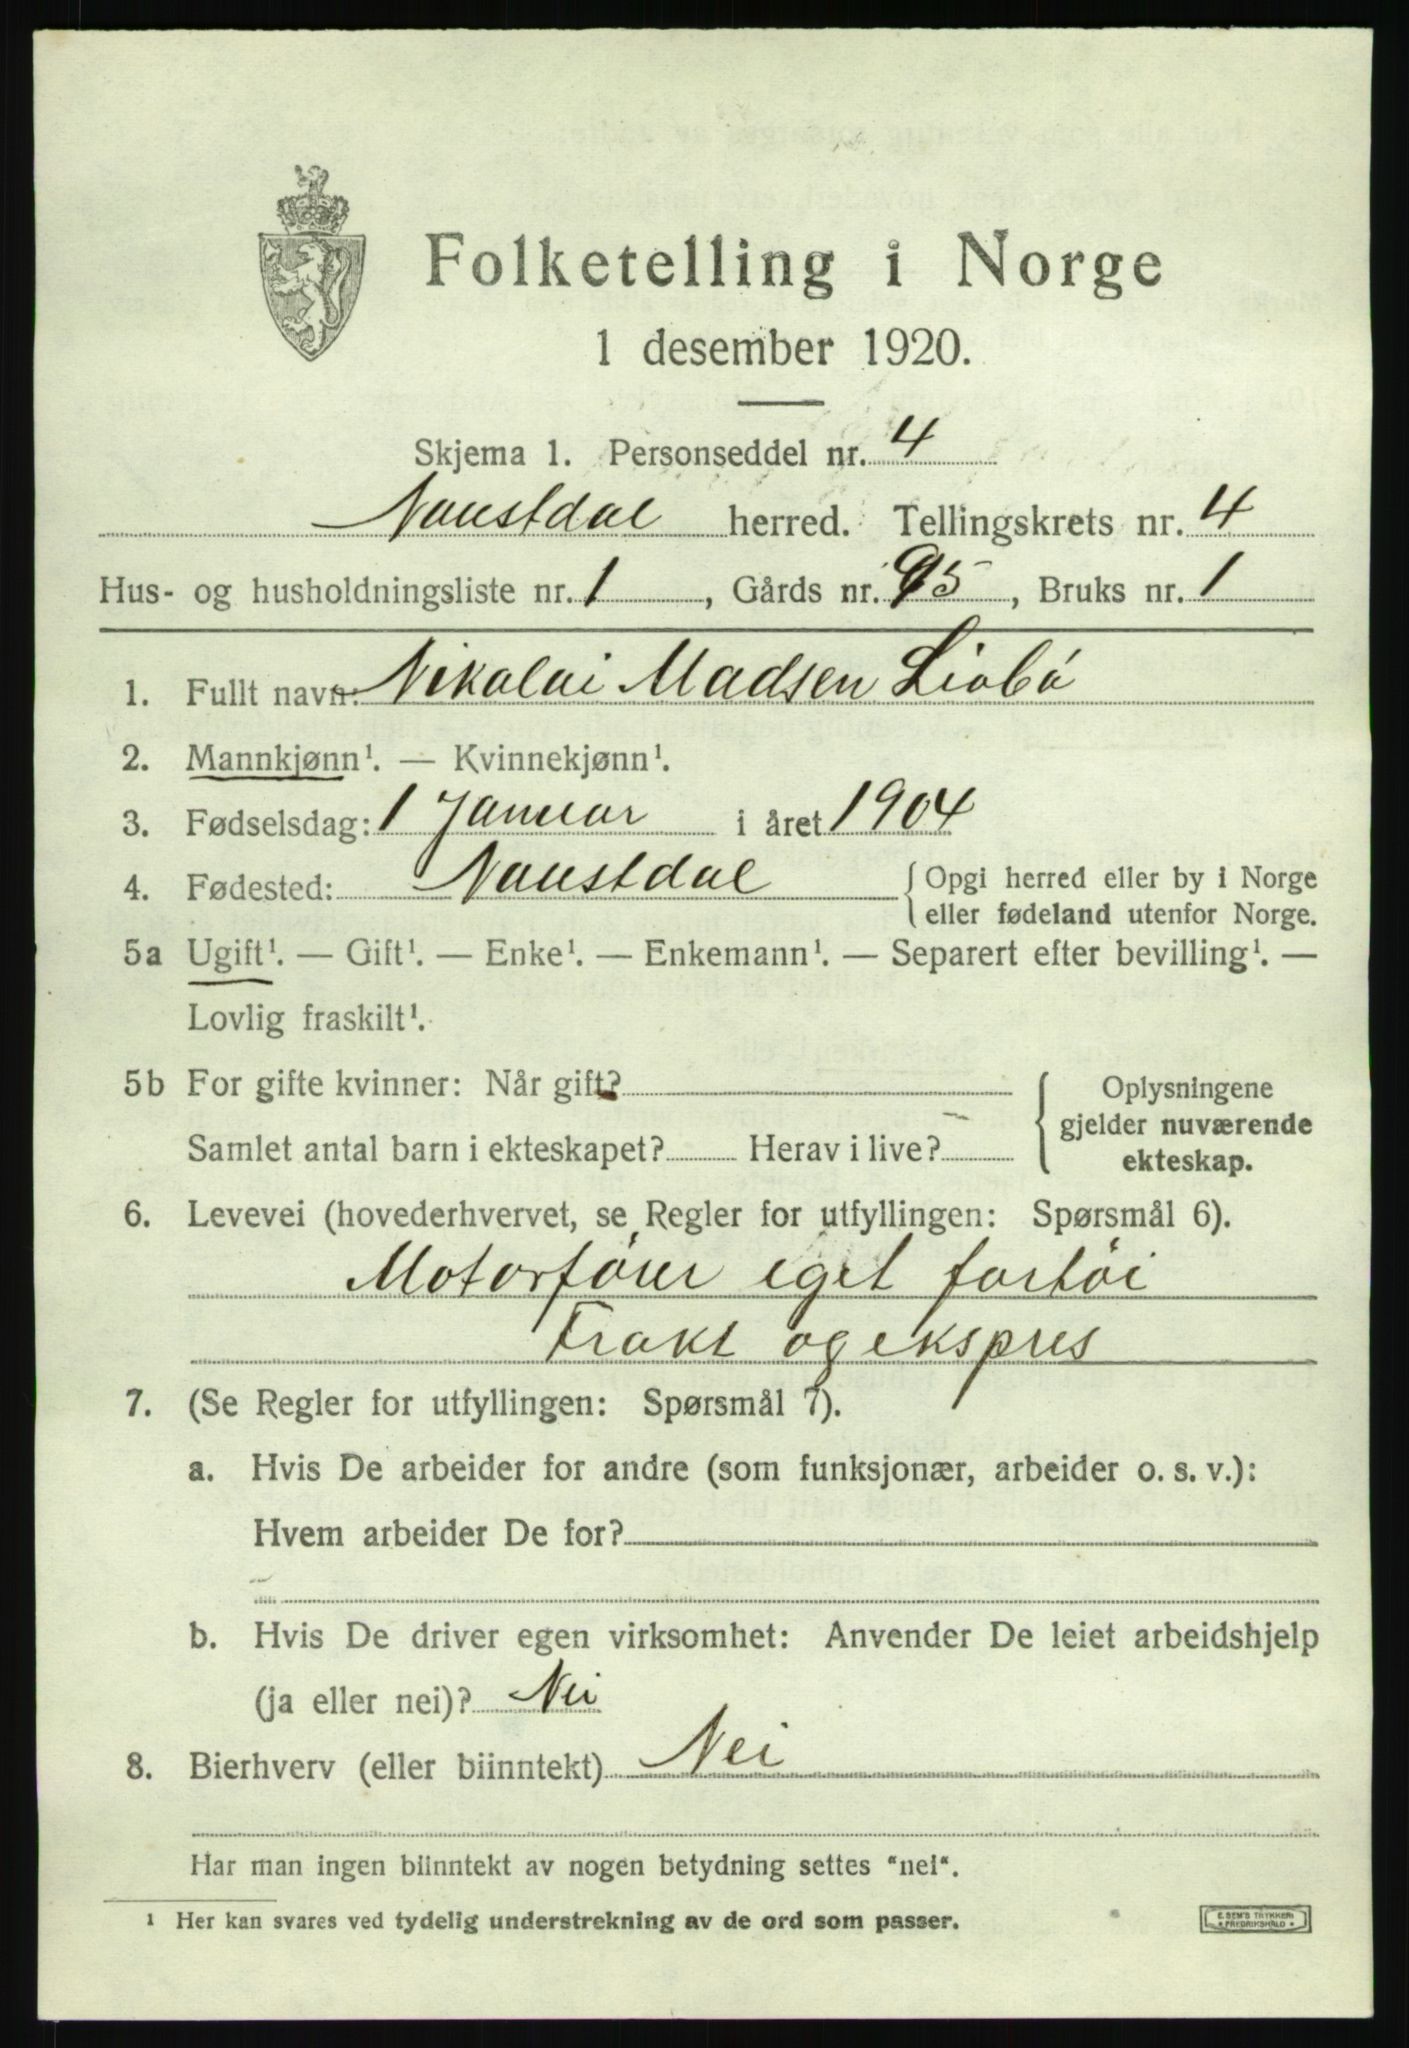 Folketelling i Norge
1 desember 1920.
Skjema 1. Personseddel nr. 4
Naustdal herred. Tellingskrets nr. 4
Hus- og husholdningsliste nr. 1, Gårds nr. 95, Bruks nr. 1
1. Fullt navn: Nikolai Madsen Liabö
2. Mannkjønn¹. — Kvinnekjønn¹.
3. Fødselsdag: 1 Januar i året 1904
4. Fødested: Naustdal { Opgi herred eller by i Norge
eller fødeland utenfor Norge.
5a Ugift¹. — Gift¹. — Enke¹. — Enkemann¹. — Separert efter bevilling¹. —
Lovlig fraskilt¹.
5b For gifte kvinner: Når gift?
Samlet antal barn i ekteskapet? Herav i live?
{ Oplysningene
gjelder nuværende
ekteskap.
6. Levevei (hovederhvervet, se Regler for utfyllingen: Spørsmål 6).
Motorförer eget fartöi
Frakt og ekspres
7. (Se Regler for utfyllingen: Spørsmål 7).
a. Hvis De arbeider for andre (som funksjonær, arbeider o. s. v.):
Hvem arbeider De for?
b. Hvis De driver egen virksomhet: Anvender De leiet arbeidshjelp
(ja eller nei)? Nei
8. Bierhverv (eller biinntekt) Nei
Har man ingen biinntekt av nogen betydning settes "nei".
¹ Her kan svares ved tydelig understrekning av de ord som passer.
E. SEM'S TRYKKERI
• FREDRIKSHALD •